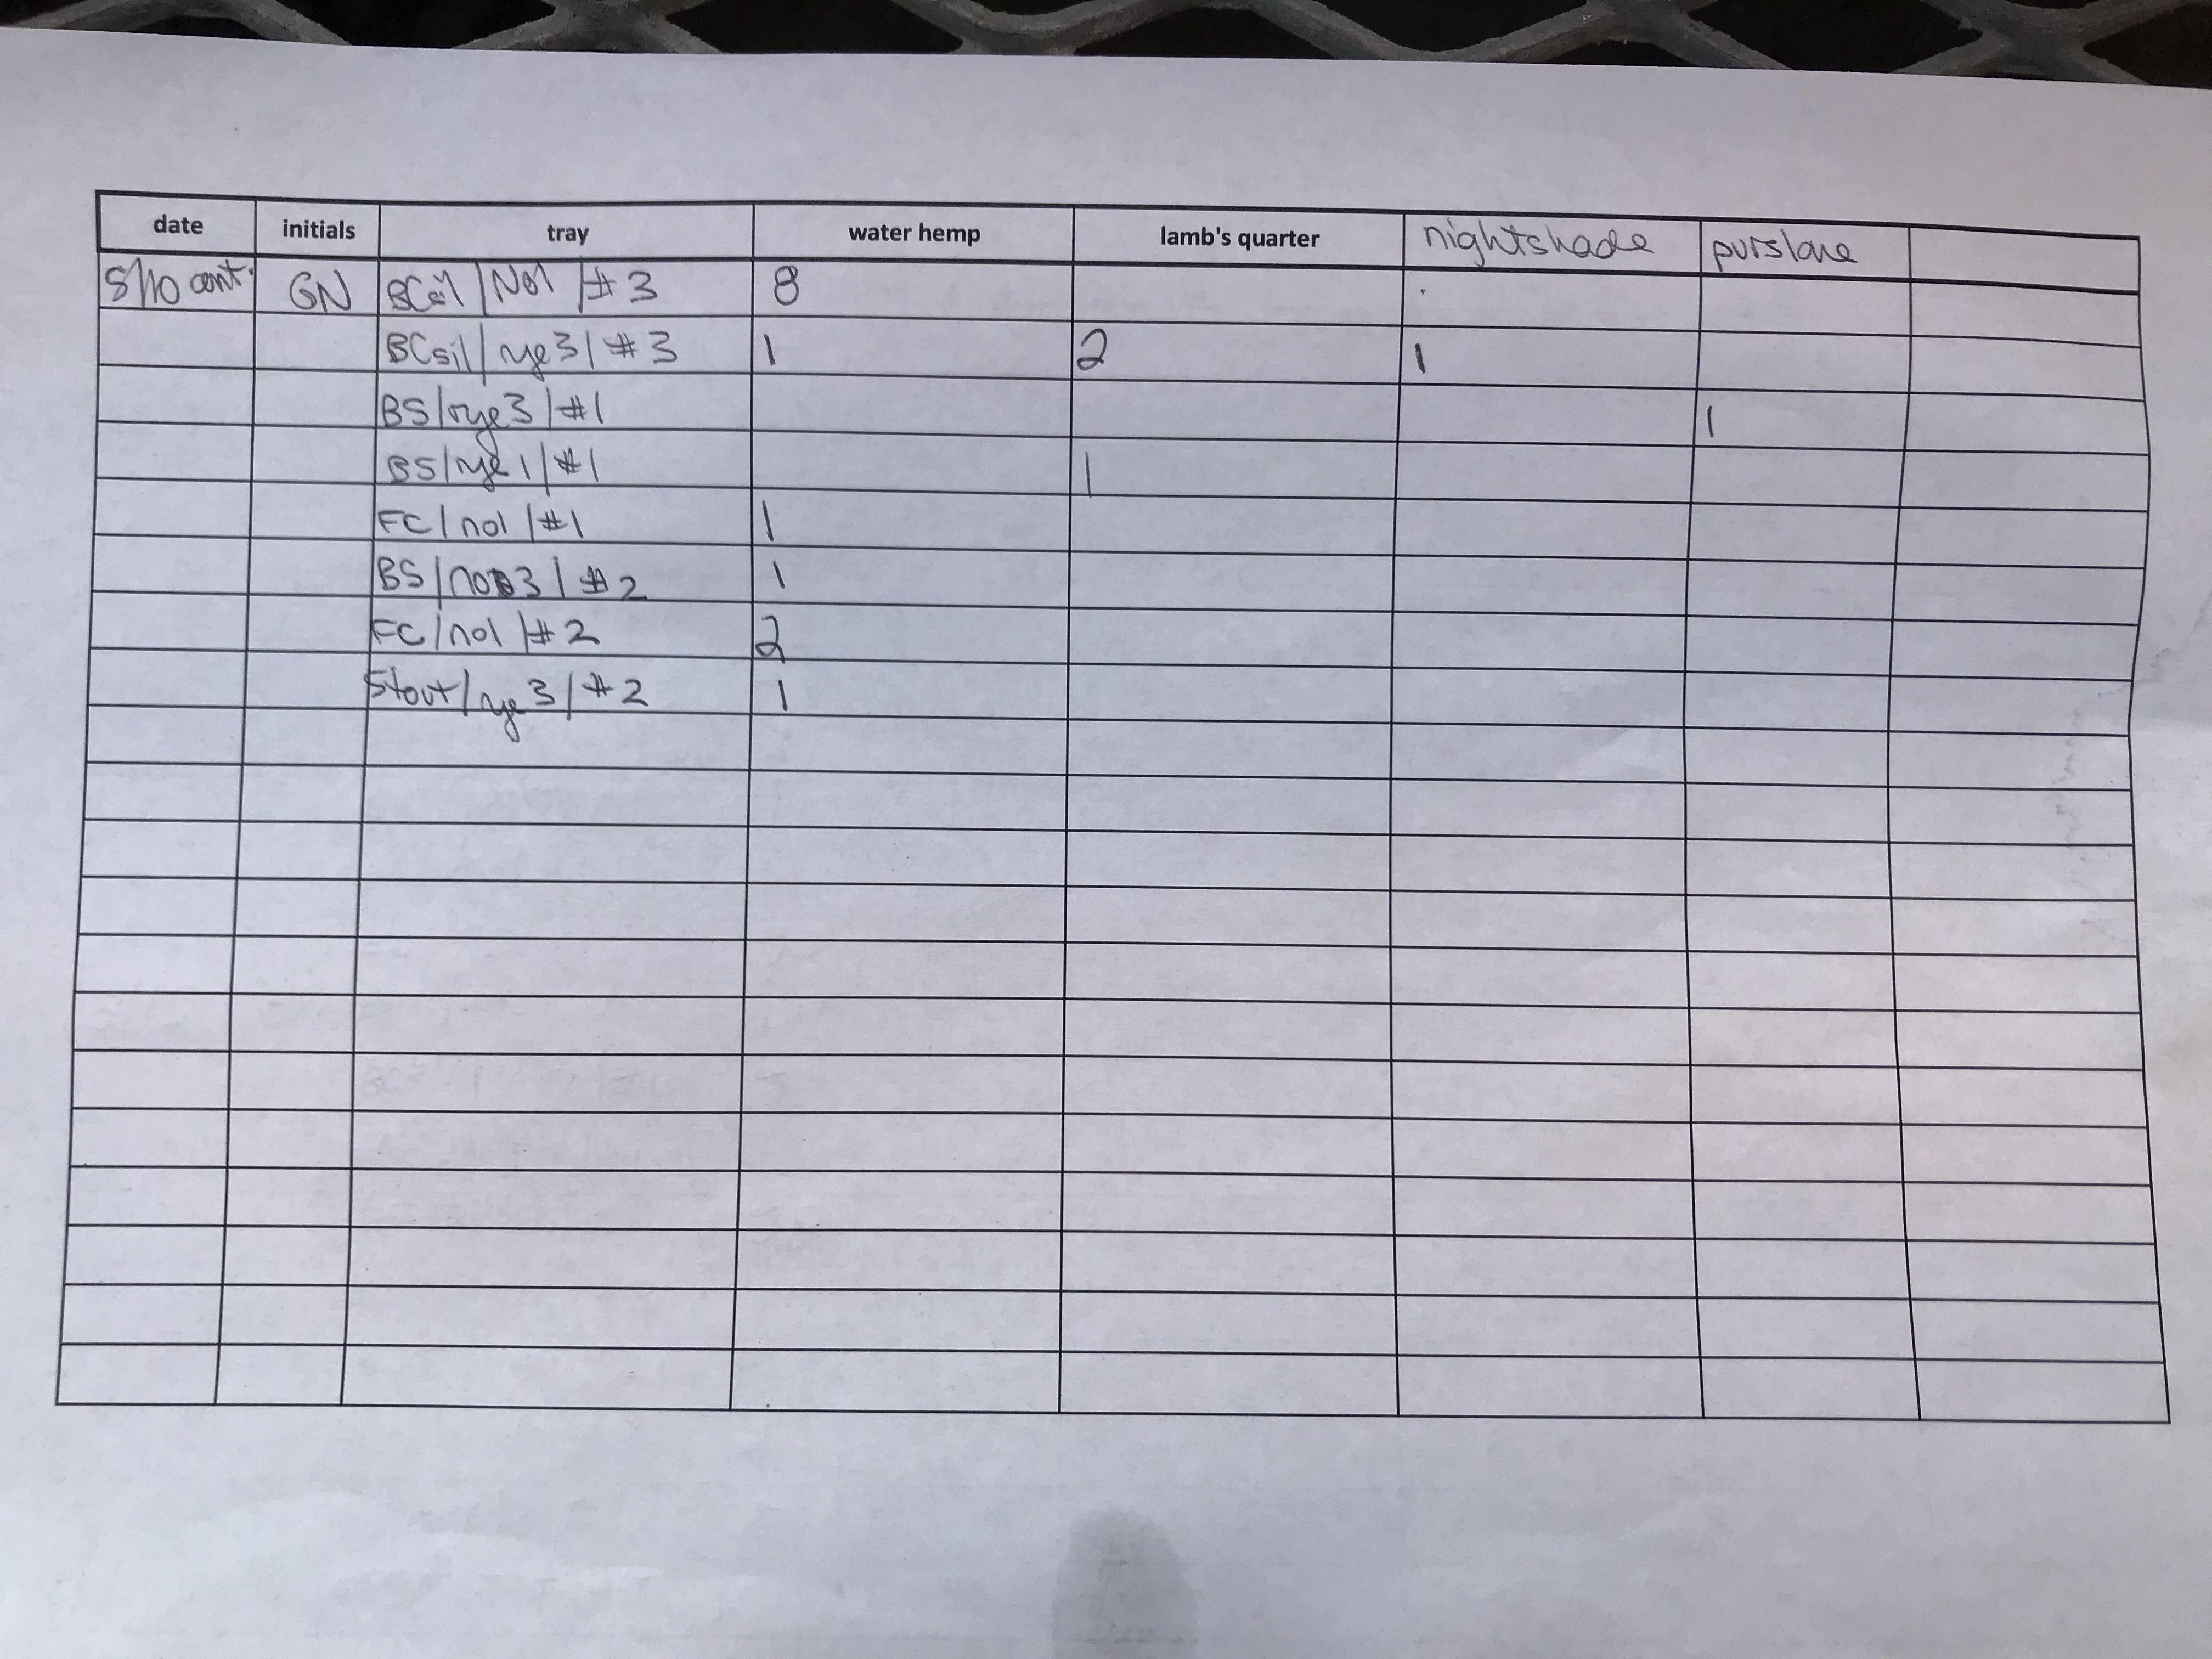 date initials tray water hemp lamb's quarter nightshade purslane
8/10 cont. GN BCsil/No1/#3 8
BCsil/rye3/#3 1 2 1
BS/rye3/#1 1
BS/rye1/#1 1
FC/no1/#1 1
BS/no3/#2 1
FC/no1/#2 2
Stout/rye3/#2 1